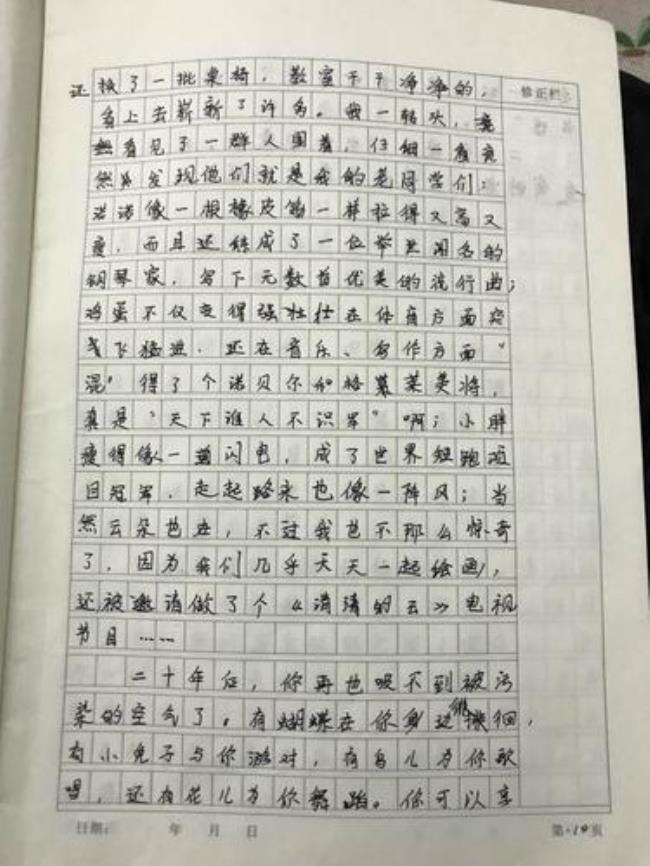 还换了一批桌椅，教室干干净净的，
修正栏：
看上去崭新了许多。我一转头，竟
然看见了一群人围着，仔细一看竟
然发现他们就是我的老同学们：
诺诺像一根橡皮筋一样拉得又高又
瘦，而且还练成了一位举世闻名的
钢琴家，写下无数首优美的流行曲；
鸡蛋不仅变得强壮壮在体育方面突
飞猛进，还在音乐、写作方面“
混”得了个诺贝尔和格莱美将，
真是“天下谁人不识君”啊；小胖
瘦得像一道闪电，成了世界短跑项
目冠军，走起路来也像一阵风；当
然云朵也在，不过我也不那么惊奇
了，因为我们几乎天天一起绘画，
还被邀请做了个《清清的云》电视
节目……
二十年后，你再也吸不到被污
染的空气了。有蝴蝶在你身边徘徊，
有小兔子与你游对，有鸟儿为你歌
唱，还有花儿为你舞蹈。你可以享
日期： 年 月 日 第·10页